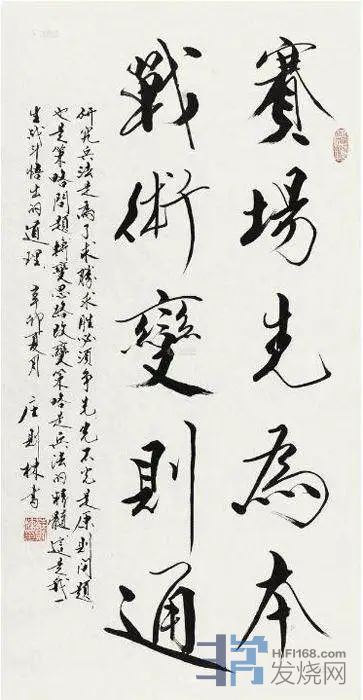 賽場先為本
戰術變則通
研究兵法是為了求勝求胜必須争先先不先是原則問題、
也是策略問題轉變思路改變策略是兵法的精髓這是我一
生战斗悟出的道理、辛卯夏月 庄則棟書
HIFI168.com
发烧网